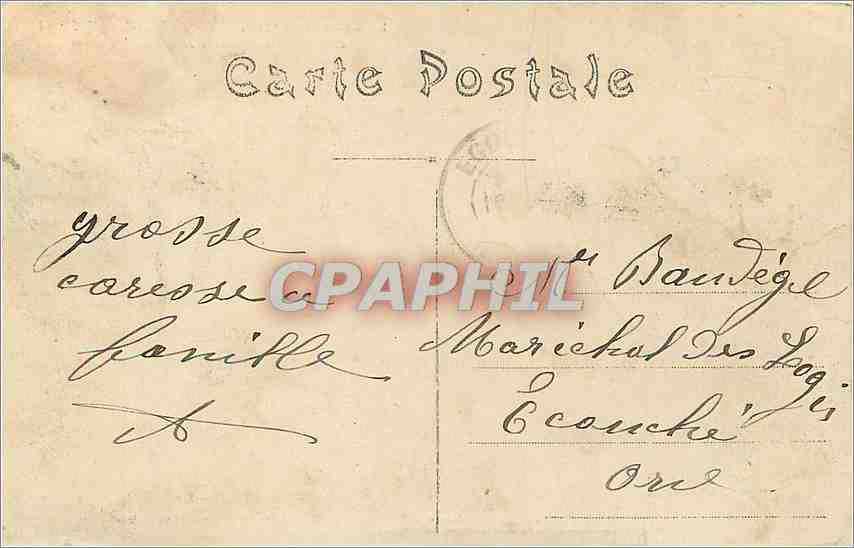 Carte Postale
grosse
caresse a
famille
A
CPAPHIL
Mr Baudégel
Maréchal des Logis
Ecouché
Orne